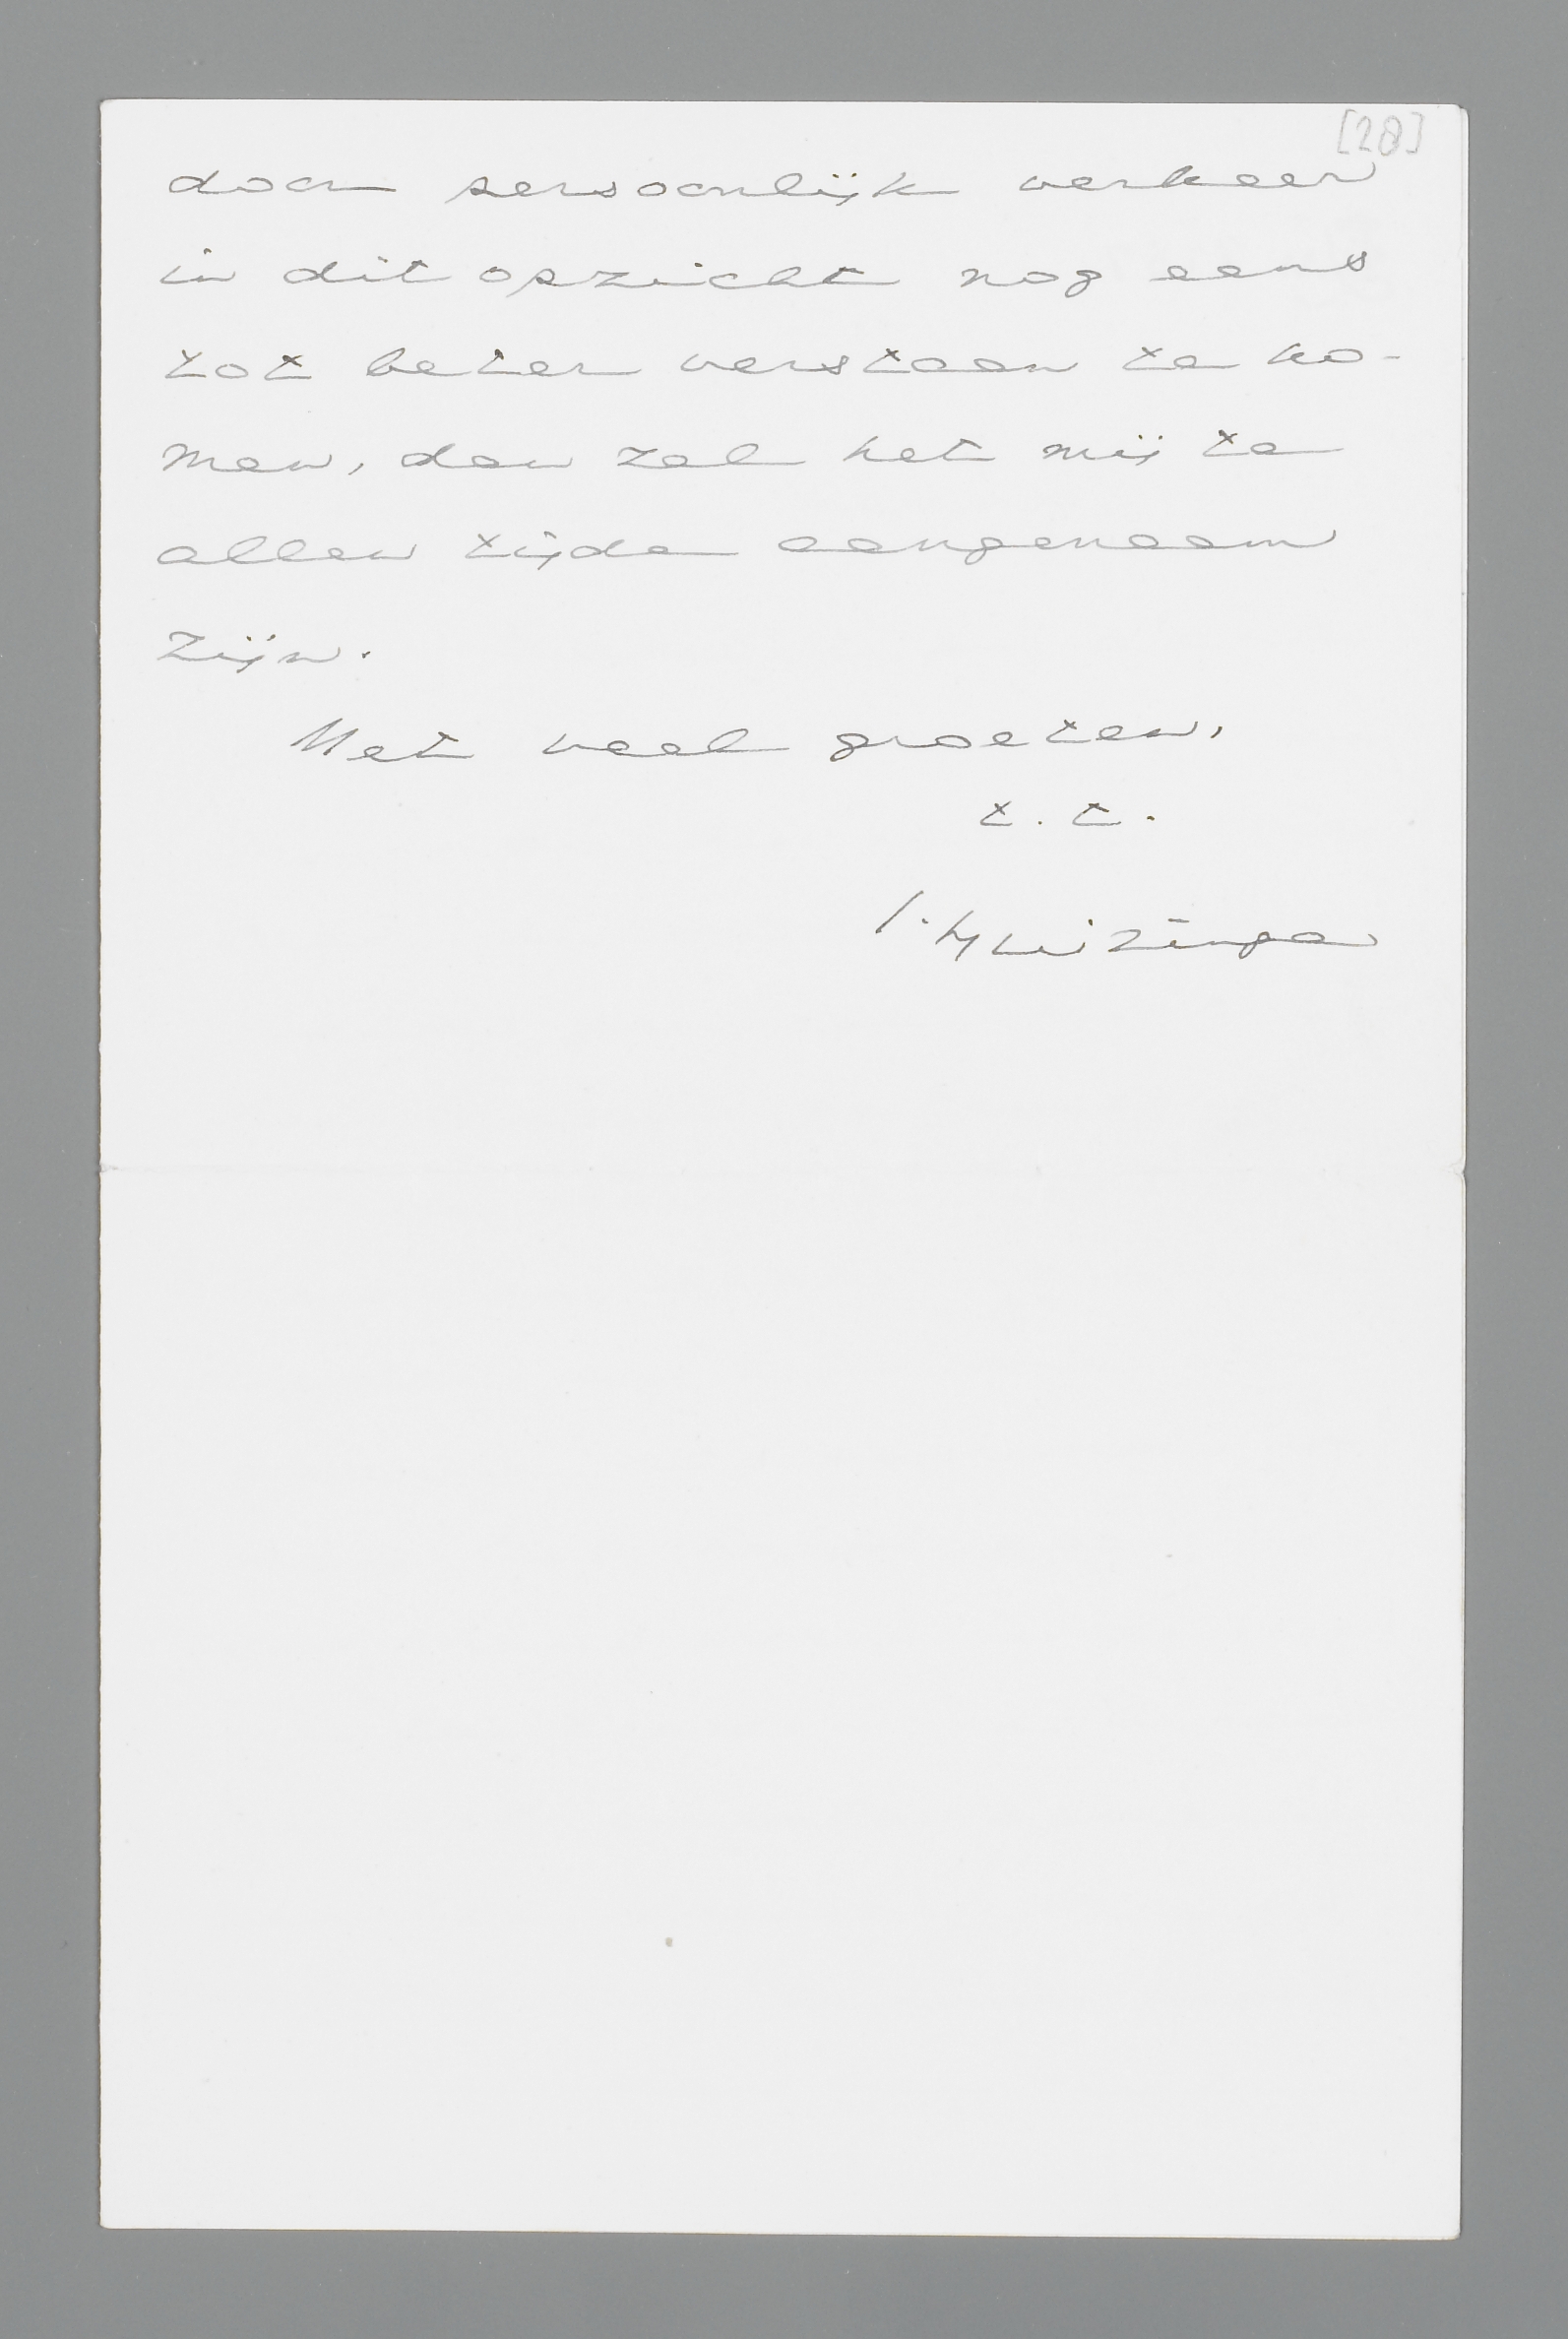 [28]
door persoonlijk verkeer
in dit opzicht nog eens
tot beter verstaan te ko-
men, dan zal het mij te
allen tijde aangenaam
zijn.
Met veel groeten,
t. t.
J. Huizinga